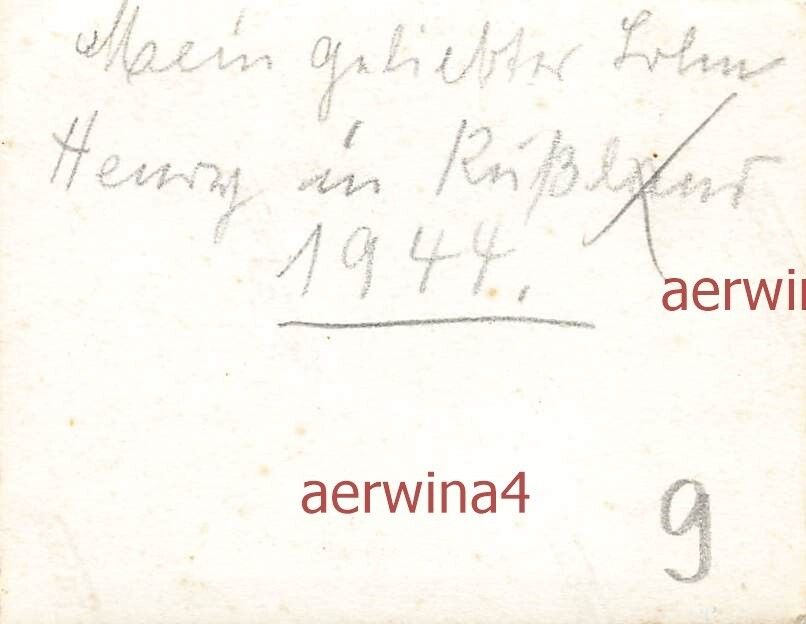 Mein geliebter Sohn
Henry in Rußland
1944.
aerwin
aerwina4
9